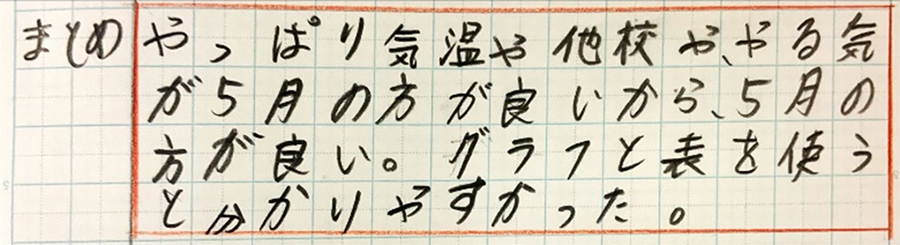 まとめ やっぱり気温や他校や、やる気
が5月の方が良いから、5月の
方が良い。グラフと表を使う
と分かりやすかった。